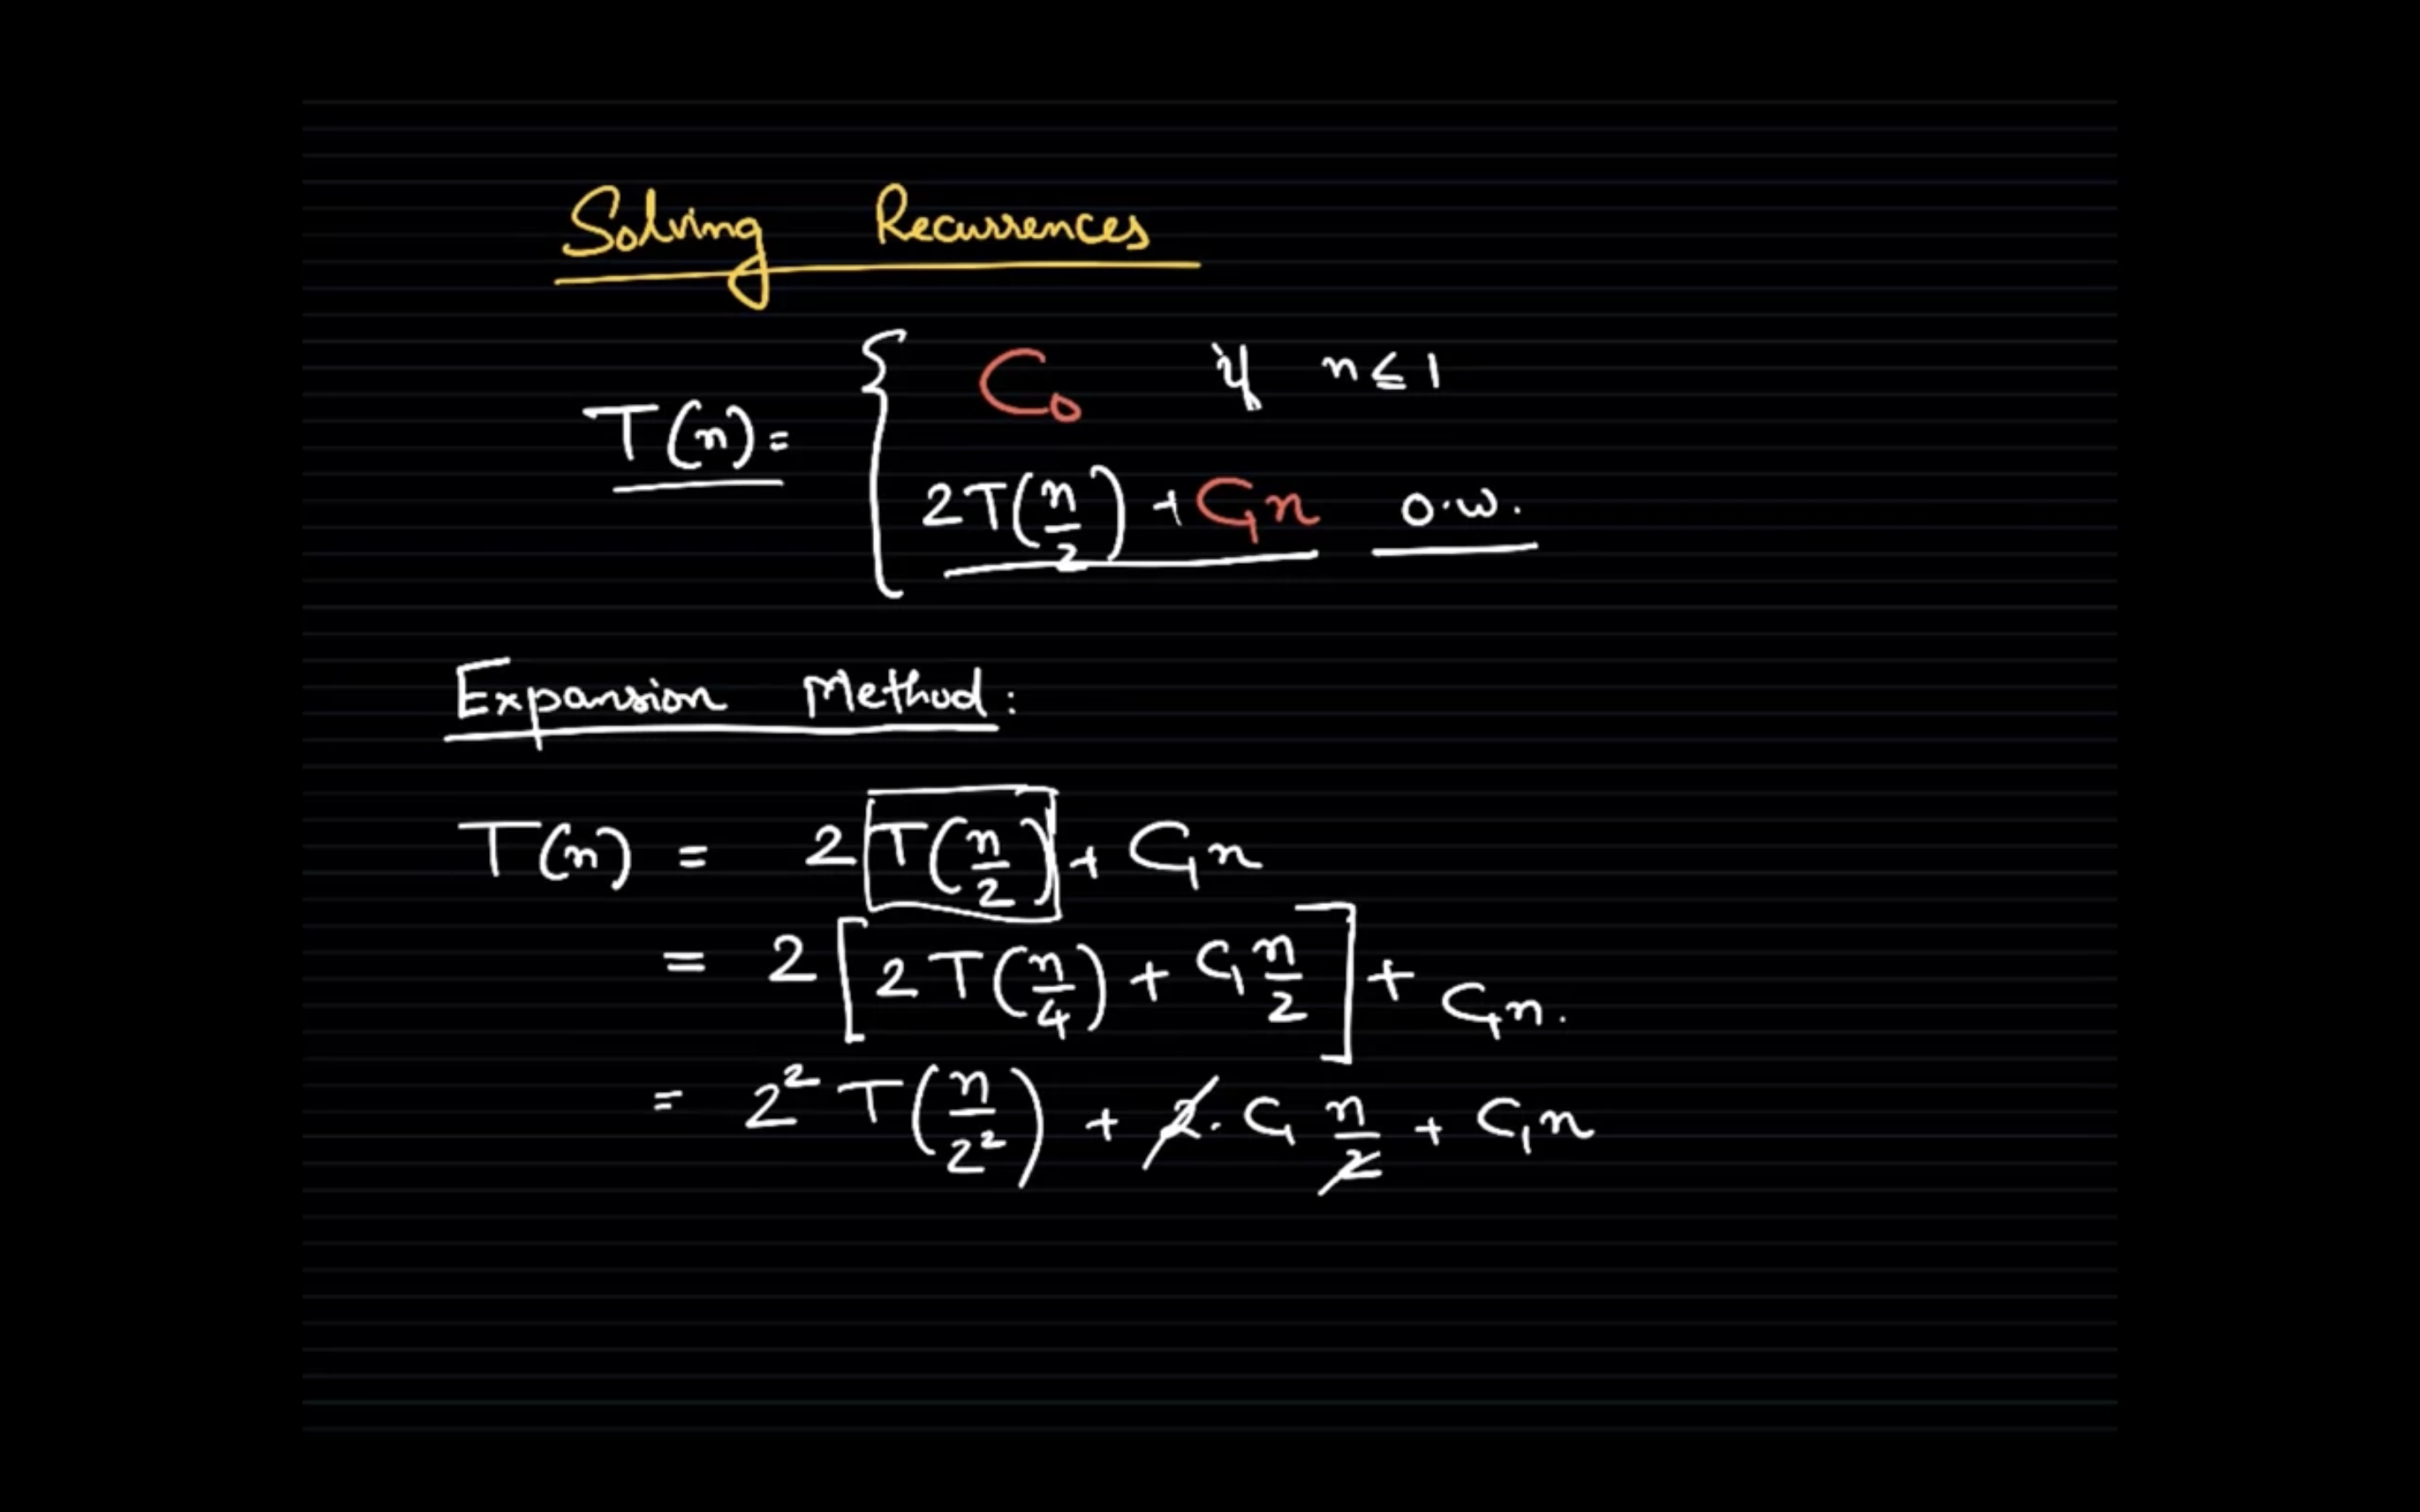 Solving Recurrences
T(n) = { C₀ if n ≤ 1
2T(n/2) + C₁n o.w.
Expansion Method:
T(n) = 2 T(n/2) + C₁n
= 2 [ 2T(n/4) + C₁ n/2 ] + C₁n.
= 2² T(n/2²) + 2. C₁ n/2 + C₁n